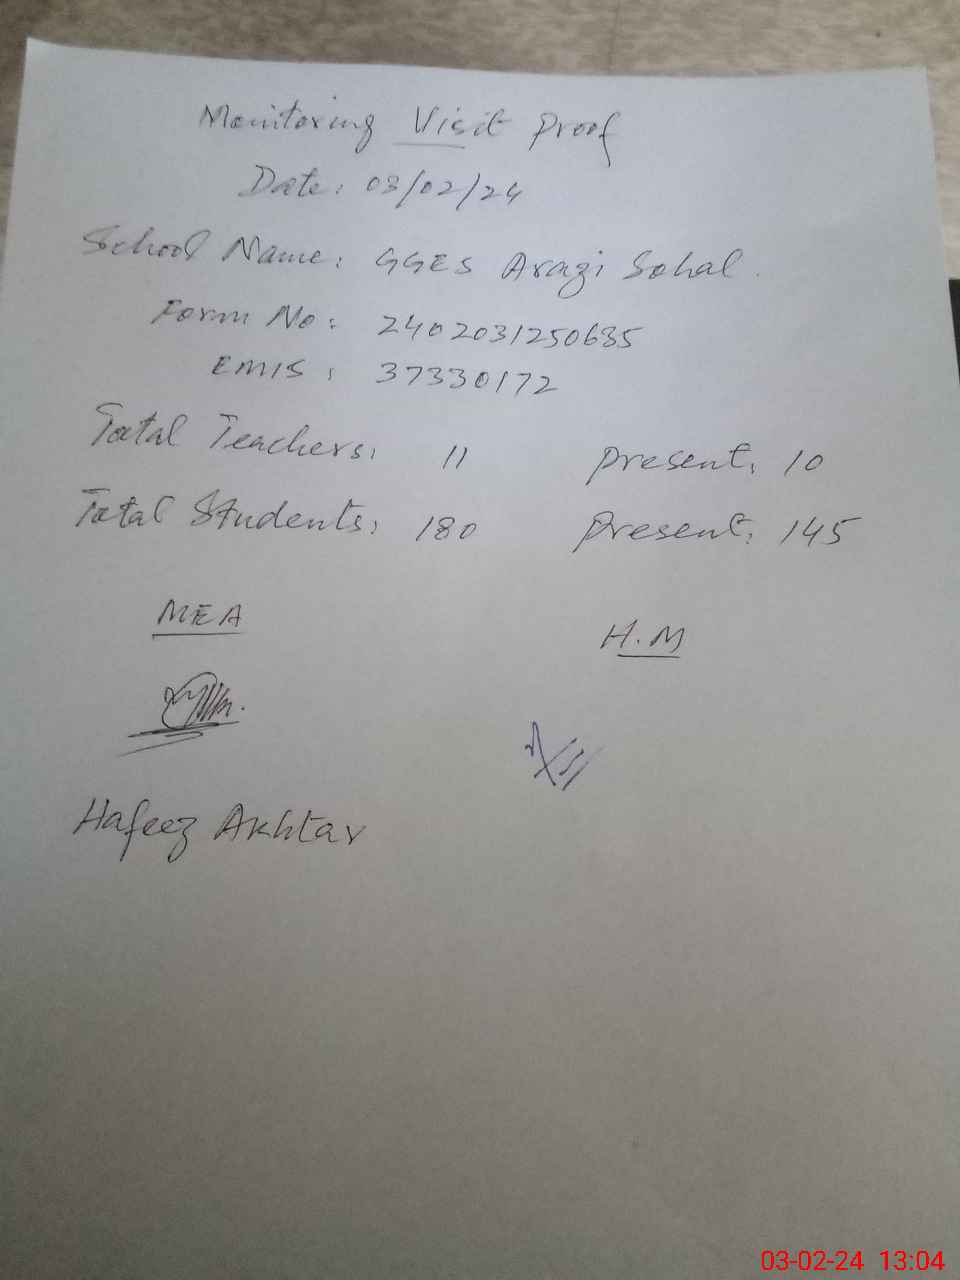 Monitoring Visit Proof
Date: 03/02/24
School Name: GGES Arazi Sohal
Form No: 2402031250635
EMIS: 37330172
Total Teachers: 11 Present: 10
Total Students: 180 Present: 145
MEA H.M
Hafeez Akhtar
03-02-24 13:04